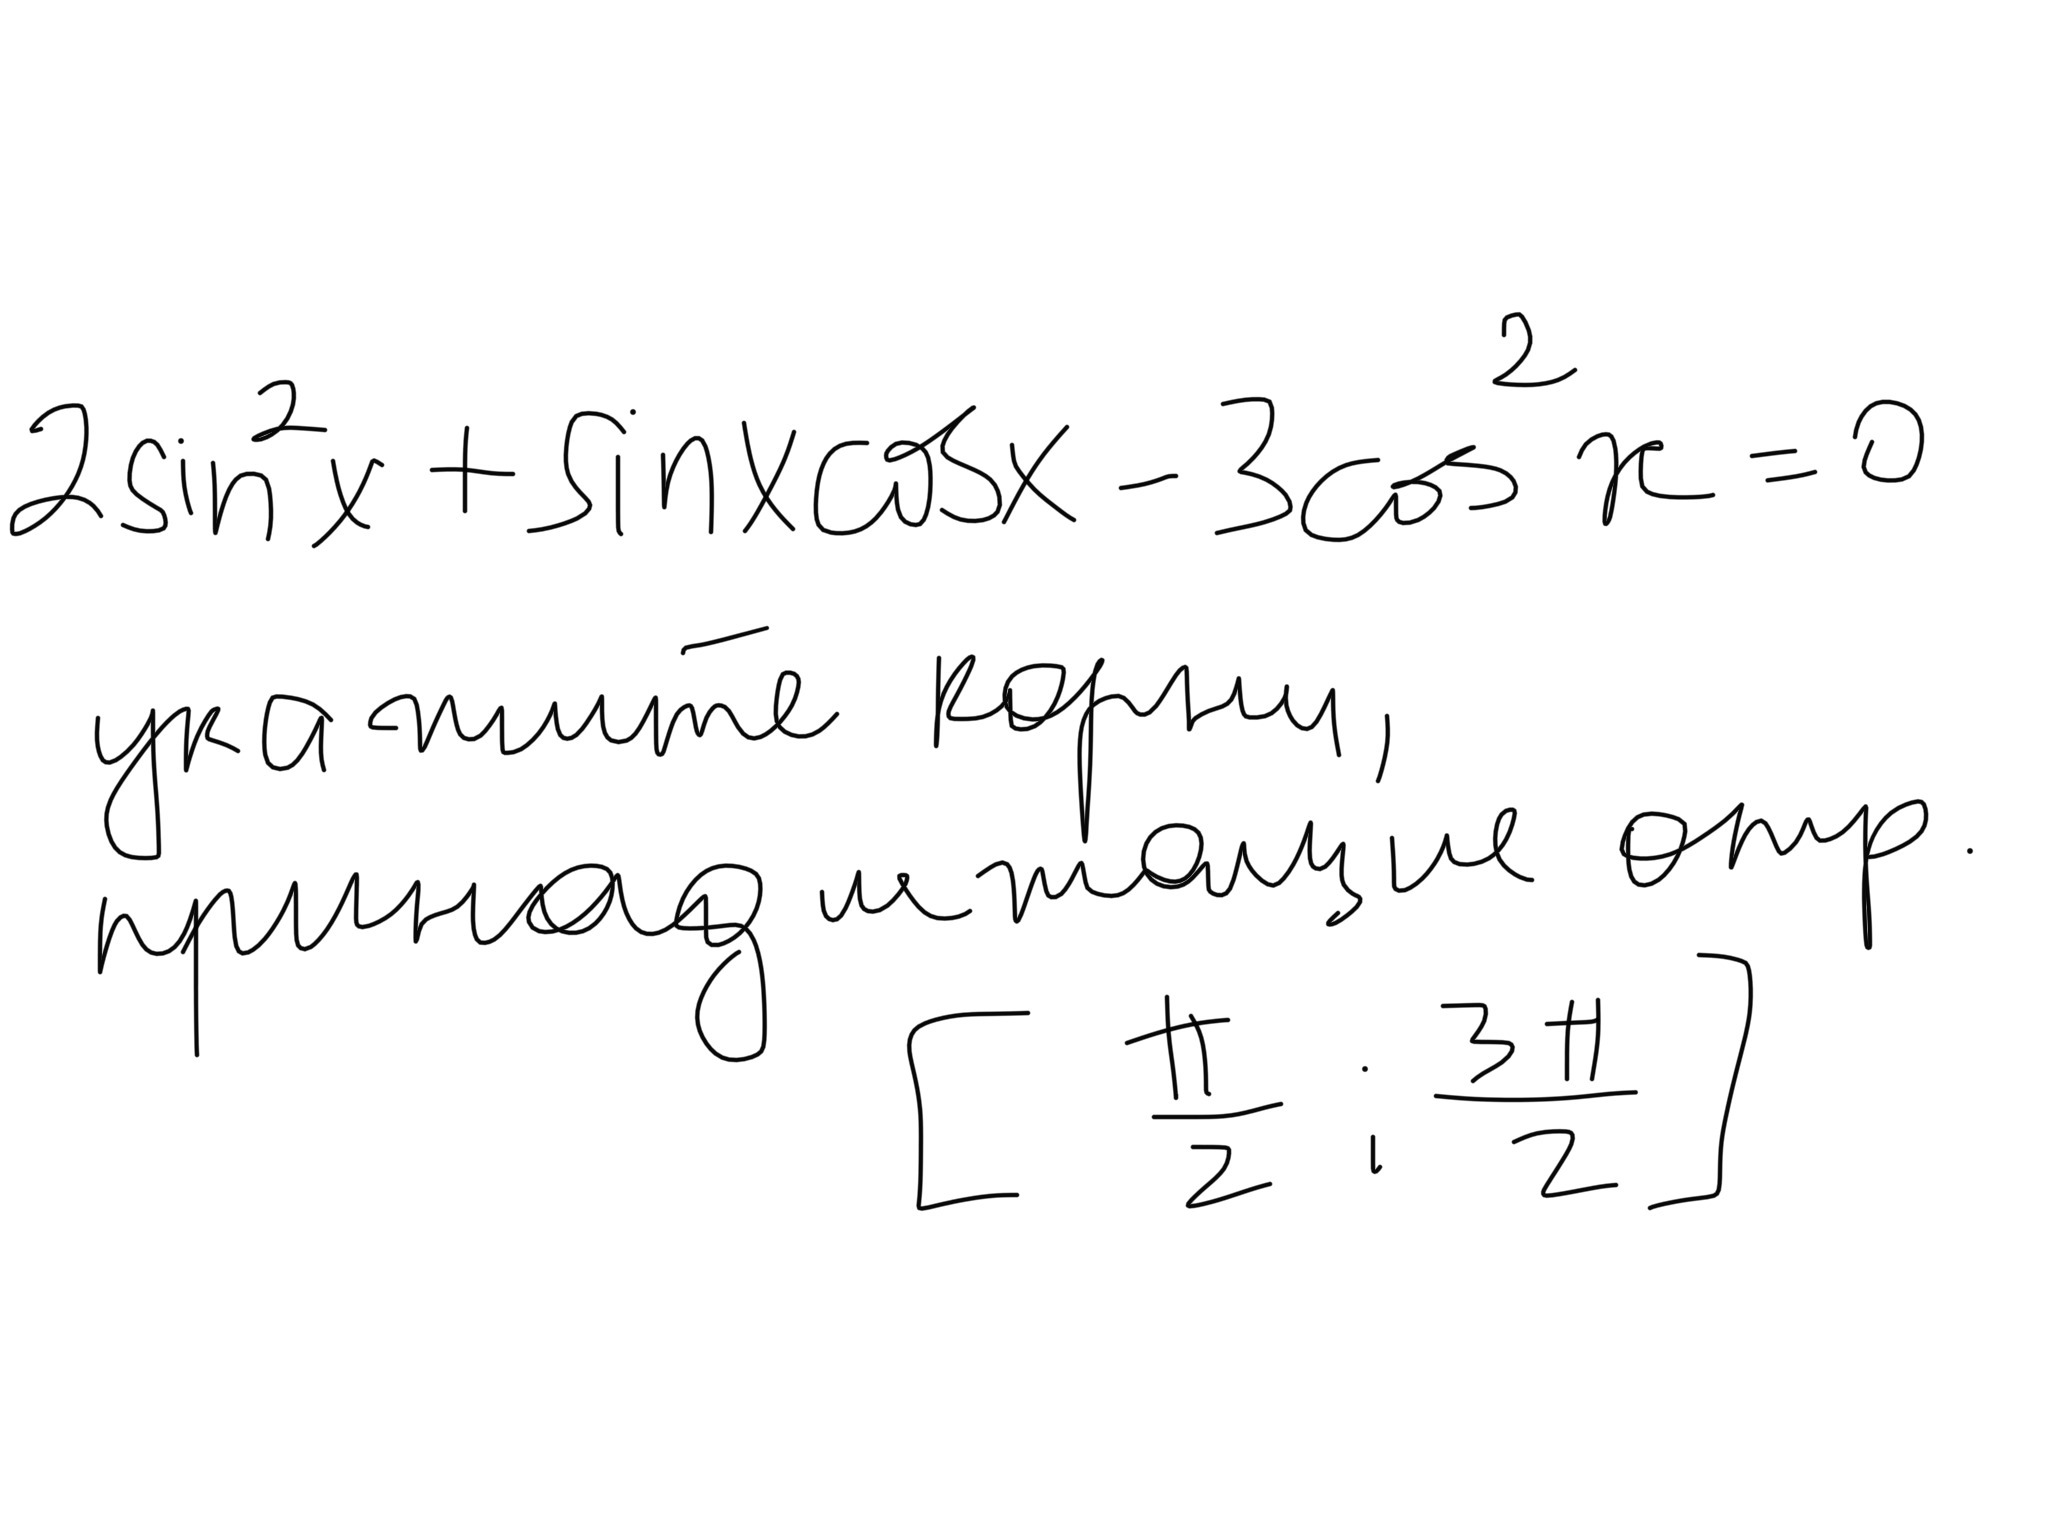 2sin²x + sinxcosx - 3cos²x = 0
укажите корни,
принадлежащие отр.
[π/2 ; 3π/2]